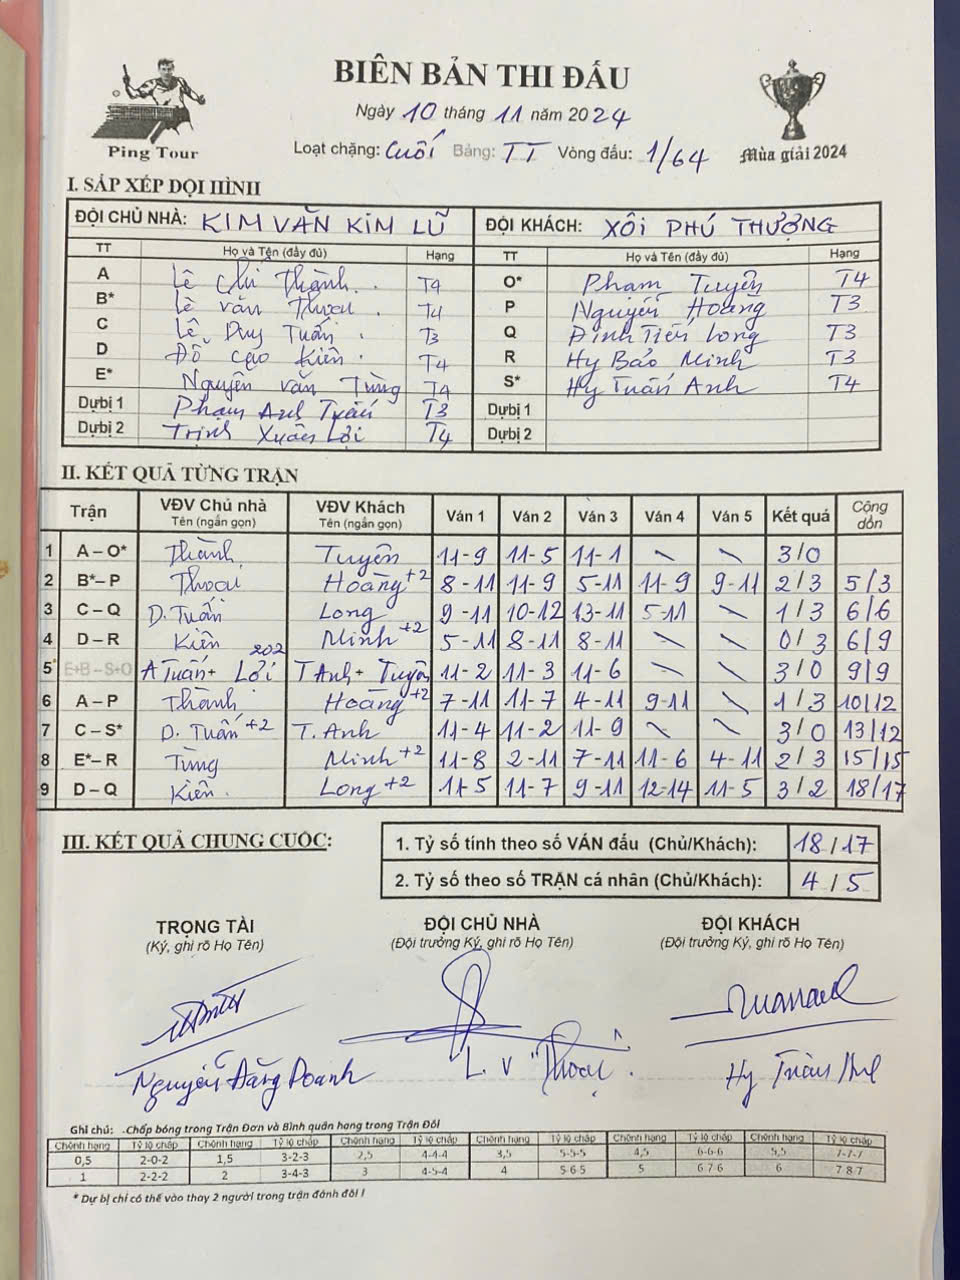 BIÊN BẢN THI ĐẤU
Ngày 10 tháng 11 năm 2024
Ping Tour
Loạt chặng: Cuối Bảng: TT Vòng đấu: 1/64
Mùa giải 2024
I. SẮP XẾP ĐỘI HÌNH
ĐỘI CHỦ NHÀ: KIM VĂN KIM LŨ ĐỘI KHÁCH: XÔI PHÚ THƯỢNG
TT Họ và Tên (đầy đủ) Hạng TT Họ và Tên (đầy đủ) Hạng
A Lê Chí Thành T4 O* Phạm Tuyên T4
B* Lê Văn Thoại T4 P Nguyễn Hoàng T3
C Lê Duy Tuấn T3 Q Đinh Tiến Long T3
D Đỗ Cao Kiên T4 R Hy Bảo Minh T3
E* Nguyễn Văn Tùng T4 S* Hy Tuấn Anh T4
Dự bị 1 Phạm Anh Tuấn T3 Dự bị 1
Dự bị 2 Trịnh Xuân Lợi T4 Dự bị 2
II. KẾT QUẢ TỪNG TRẬN
Trận VĐV Chủ nhà Tên (ngắn gọn) VĐV Khách Tên (ngắn gọn) Ván 1 Ván 2 Ván 3 Ván 4 Ván 5 Kết quả Cộng dồn
1 A – O* Thành Tuyên 11-9 11-5 11-1 \ \ 3/0
2 B* – P Thoại Hoàng+2 8-11 11-9 5-11 11-9 9-11 2/3 5/3
3 C – Q D. Tuấn Long 9-11 10-12 13-11 5-11 \ 1/3 6/6
4 D – R Kiên Minh+2 5-11 8-11 8-11 \ \ 0/3 6/9
5* E+B – S+O A Tuấn + Lợi 202 T Anh + Tuyên 11-2 11-3 11-6 \ \ 3/0 9/9
6 A – P Thành Hoàng+2 7-11 11-7 4-11 9-11 \ 1/3 10/12
7 C – S* D. Tuấn+2 T. Anh 11-4 11-2 11-9 \ \ 3/0 13/12
8 E* – R Tùng Minh+2 11-8 2-11 7-11 11-6 4-11 2/3 15/15
9 D – Q Kiên. Long+2 11-5 11-7 9-11 12-14 11-5 3/2 18/17
III. KẾT QUẢ CHUNG CUỘC:
1. Tỷ số tính theo số VÁN đấu (Chủ/Khách): 18/17
2. Tỷ số theo số TRẬN cá nhân (Chủ/Khách): 4/5
TRỌNG TÀI ĐỘI CHỦ NHÀ ĐỘI KHÁCH
(Ký, ghi rõ Họ Tên) (Đội trưởng Ký, ghi rõ Họ Tên) (Đội trưởng Ký, ghi rõ Họ Tên)
Nguyễn Đăng Doanh L. V "Thoại". Hy Tuấn Anh
Ghi chú: Chấp bóng trong Trận Đơn và Bình quân hạng trong Trận Đôi
Chênh hạng Tỷ lệ chấp Chênh hạng Tỷ lệ chấp Chênh hạng Tỷ lệ chấp Chênh hạng Tỷ lệ chấp Chênh hạng Tỷ lệ chấp Chênh hạng Tỷ lệ chấp
0,5 2-0-2 1,5 3-2-3 2,5 4-4-4 3,5 5-5-5 4,5 6-6-6 5,5 7-7-7
1 2-2-2 2 3-4-3 3 4-5-4 4 5-6-5 5 6-7-6 6 7-8-7
* Dự bị chỉ có thể vào thay 2 người trong trận đánh đôi !